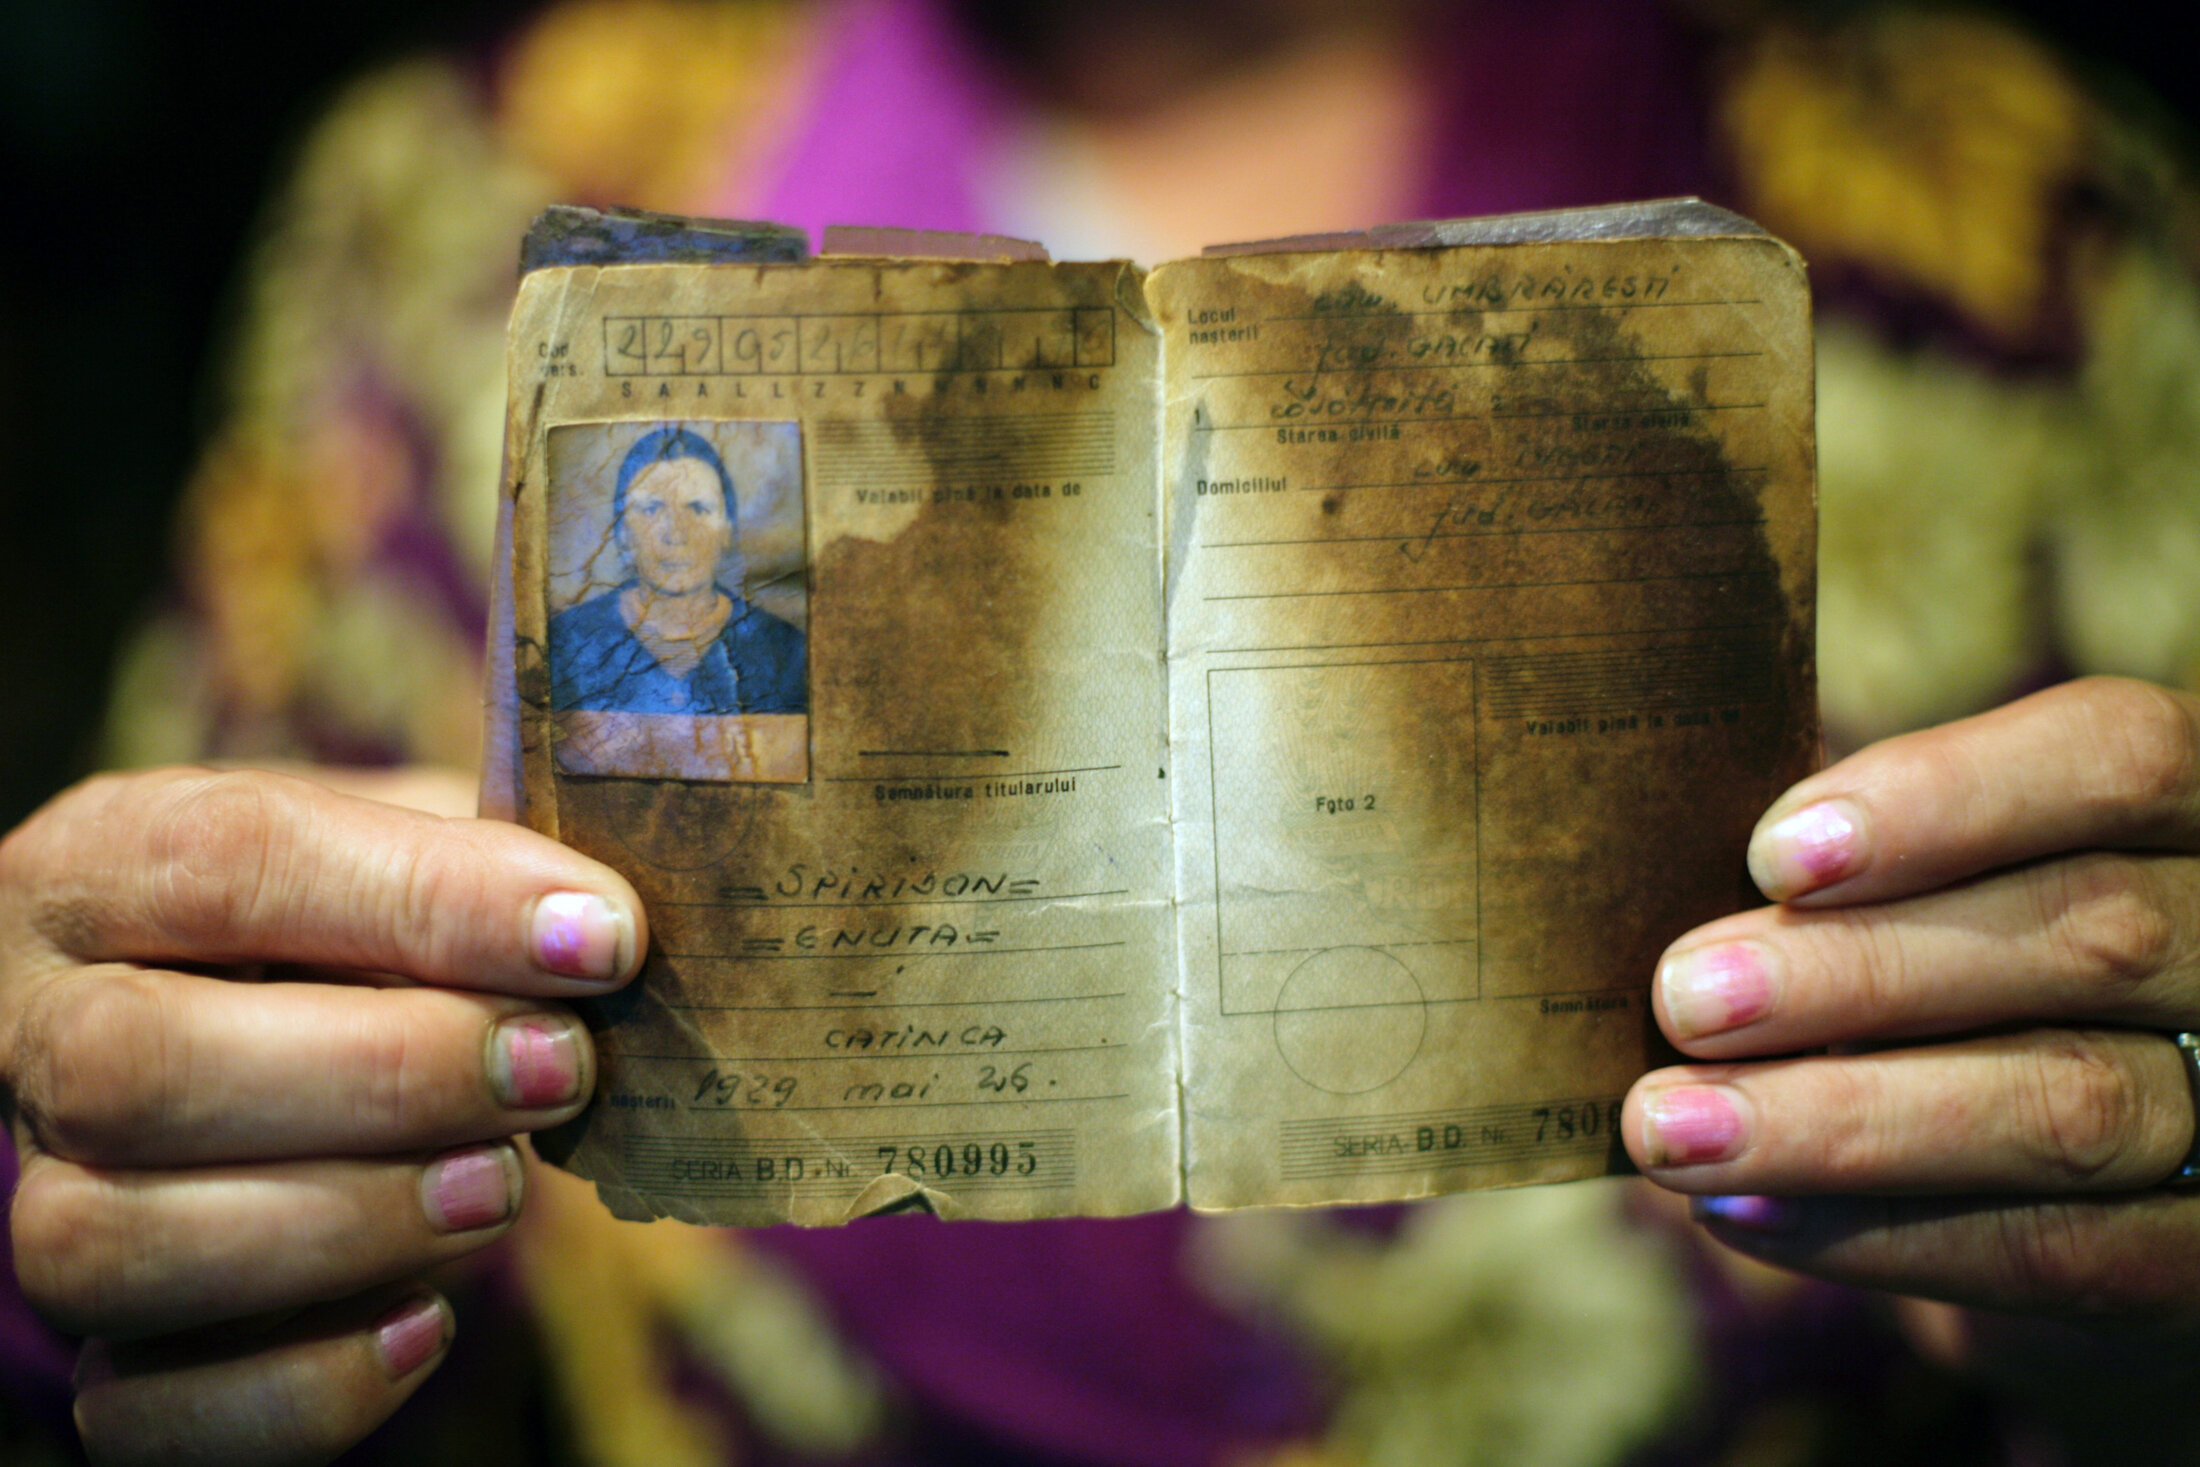 Cod
pers.
22905261
S A A L L Z Z N N N N N C
Valabil pînă la data de
Semnătura titularului
=SPIRIDON=
=ENUTA=
CATINCA
nașterii 1929 mai 26.
SERIA B.D. Nr. 780995
Locul
nașterii
com. UMBRĂREȘTI
jud. GALAȚI
1
2
Starea civilă
Starea civilă
Domiciliul
com. IVEȘTI
jud. GALAȚI
Valabil pînă la data de
Foto 2
Semnătura
SERIA B.D. Nr. 7809